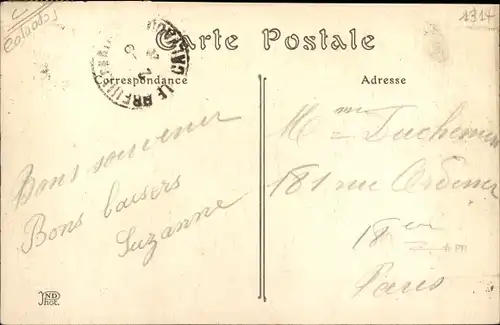 Calvados
1314
Carte Postale
Correspondance
Adresse
Bons souvenir
Bons baisers
Suzanne
Mme Duchemin
181 rue Ordener
18em
Paris
ND
Phot.